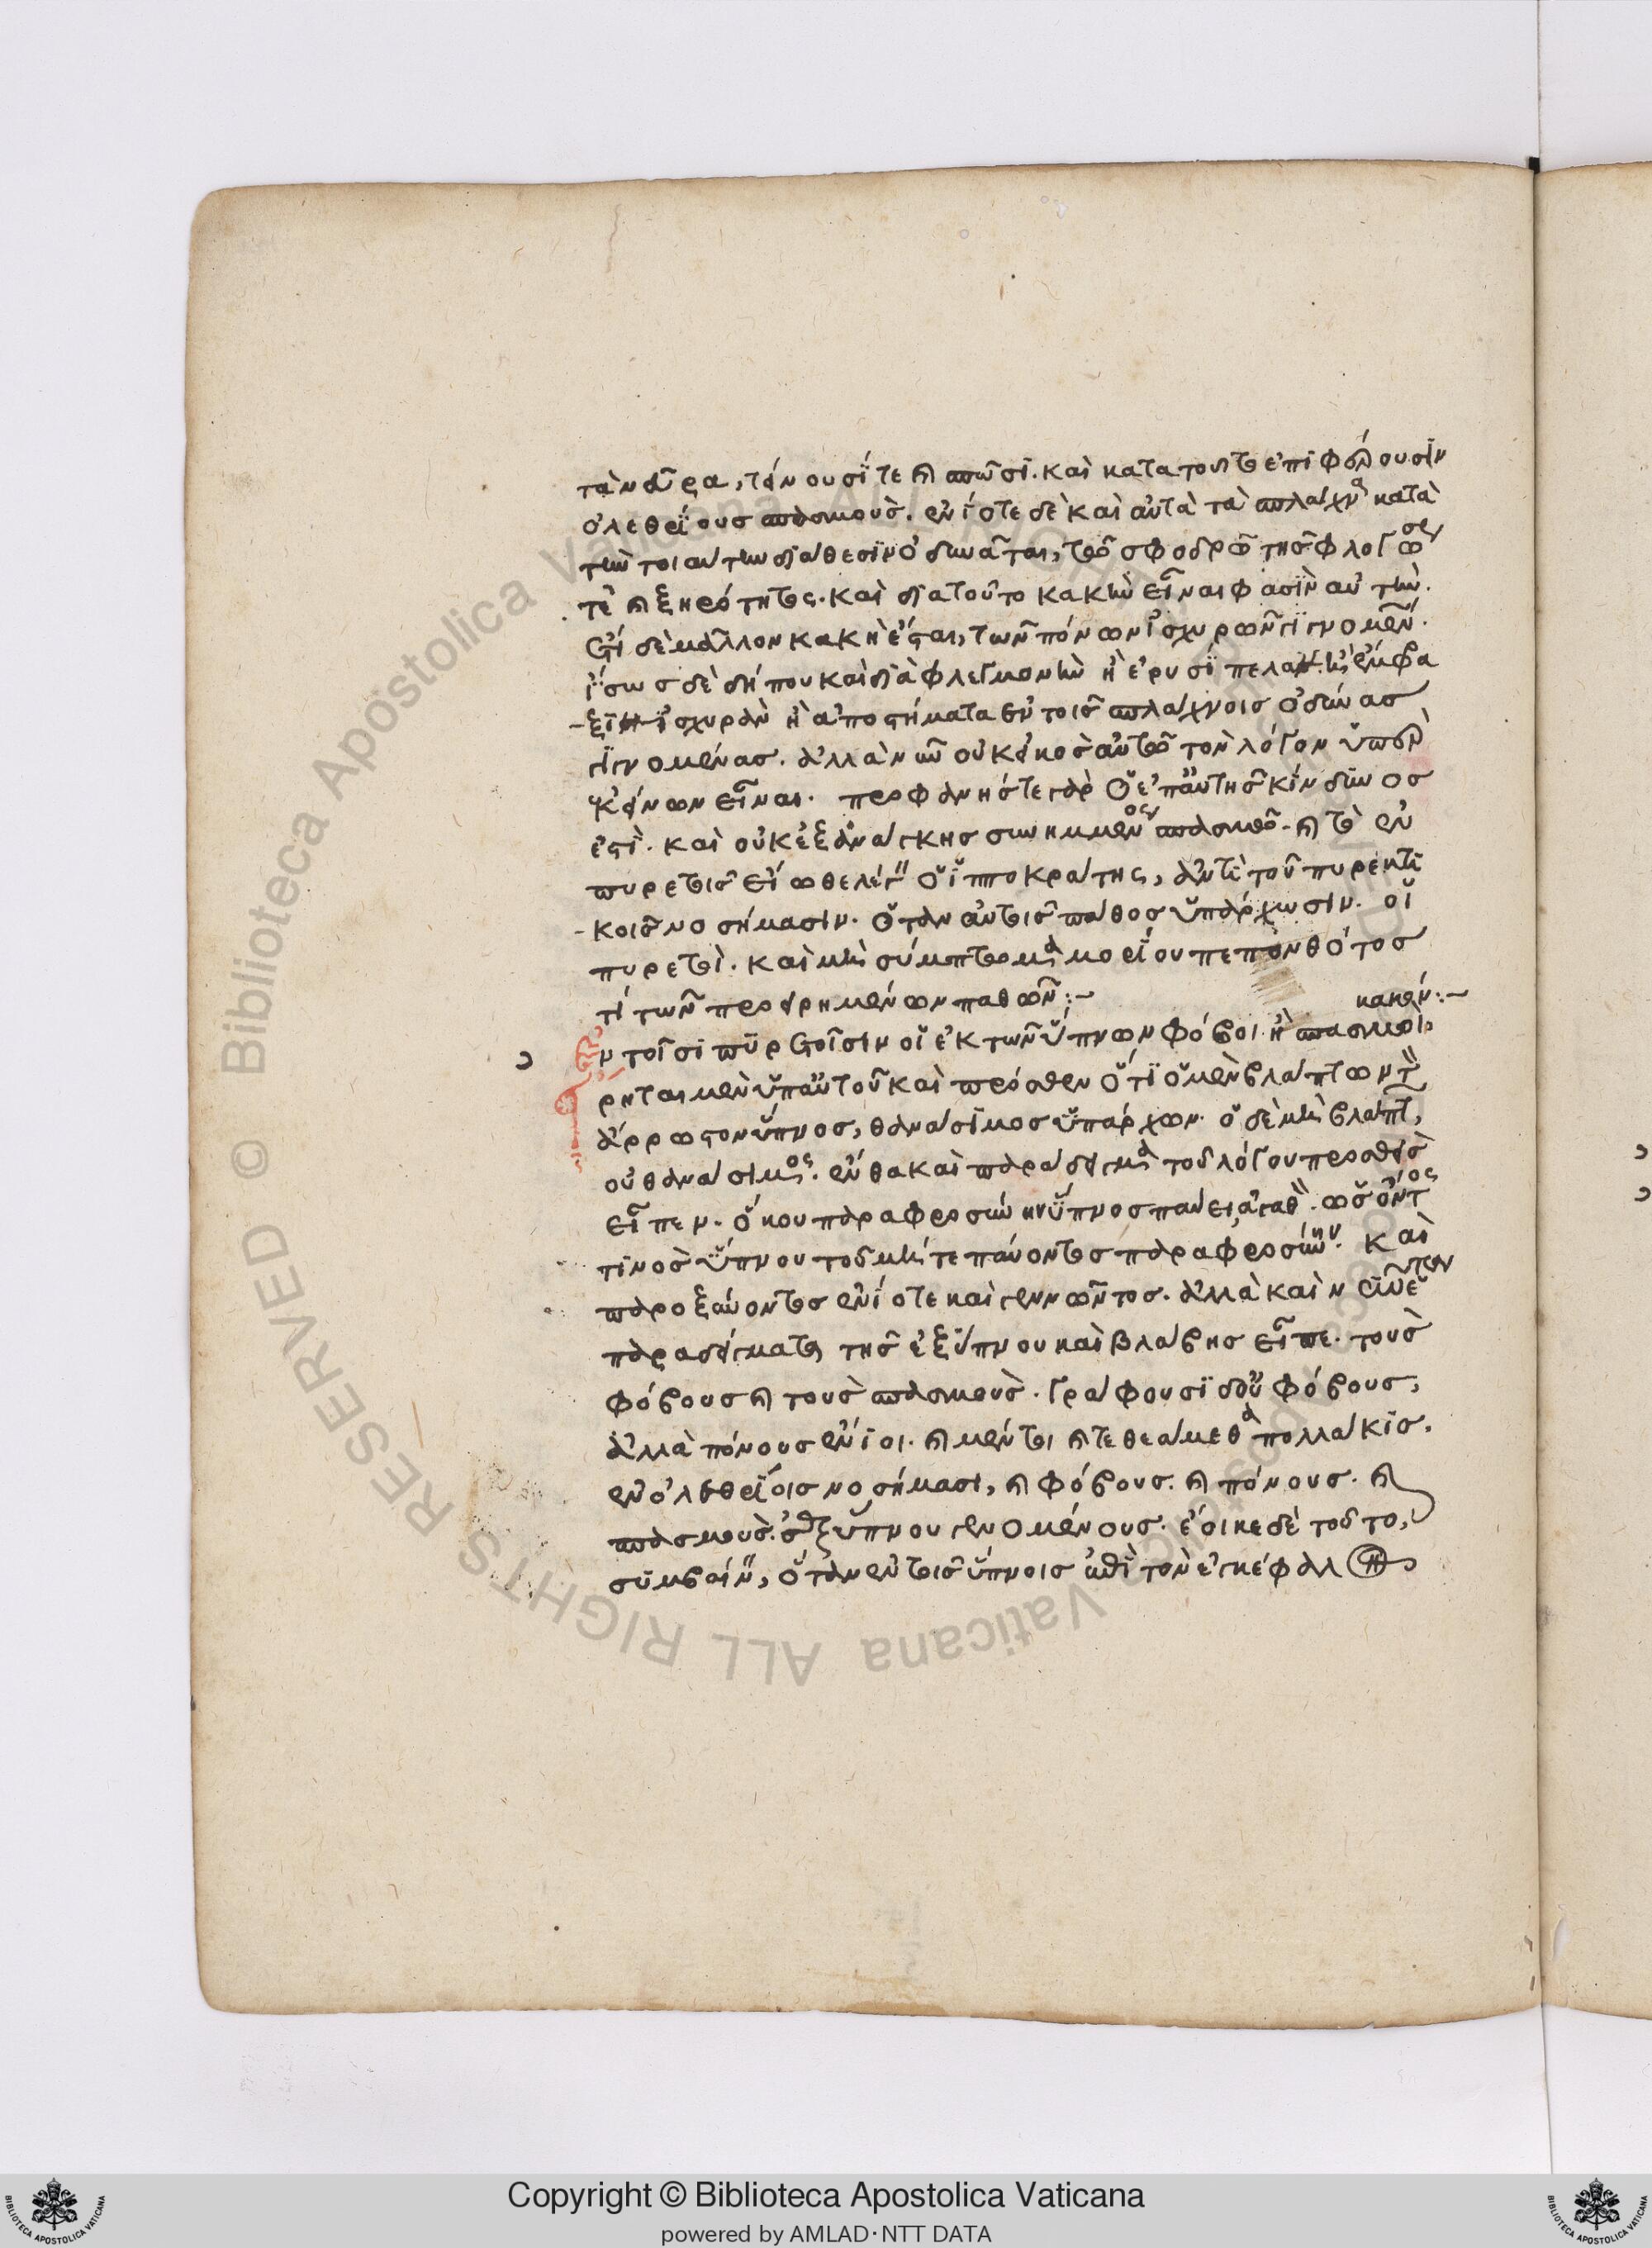 τὰ νεῦρα, τείνουσί τε καὶ σπῶσι. καὶ κατὰ τοῦτο ἐπιφέρουσιν
ὀλεθρίους σπασμούς. ἐνίοτε δὲ καὶ αὐτὰ τὰ σπλάγχνα κατὰ
τὴν τοιαύτην διάθεσιν ὀδυνᾶται, τῷ σφοδρῷ τῆς φλογώσεως
τε καὶ ξηρότητος. καὶ διὰ τοῦτο κακὴν εἶναι φασὶν αὐτὴν.
ἔτι δὲ μᾶλλον κακὴ ἔσται, τῶν πόνων ἰσχυρῶν γιγνομένων.
ἴσως δὲ δήπου καὶ διὰ φλεγμονὴν ἢ ἐρυσίπελας ἢ ἔμφρα
-ξιν ἰσχυρὰν ἢ ἀποστήματα ἐν τοῖς σπλάγχνοις ὀδύνας
γιγνομένας. ἀλλὰ νῦν οὐκ εἰκὸς αὐτῷ τὸν λόγον ὑπὲρ
κείνων εἶναι. προφανὴς τε γὰρ ὁ ἐπ' αὐτῆς κίνδυνος
ἐστὶ. καὶ οὐκ ἐξ ἀνάγκης συνημμένος σπασμῷ. καὶ τὸ ἐν
πυρετοῖς εἴωθε λέγειν ὁ ἱπποκράτης, ἀντὶ τοῦ πυρεκτι
-κοῖς νοσήμασιν. ὅταν αὐτοῖς πάθος ὑπάρχωσιν οἱ
πυρετοὶ. καὶ μὴ σύμπτωμα μορίου πεπονθότος
τι τῶν προειρημένων παθῶν:-
κακόν:-
Ἐν τοῖσι πυρετοῖσιν οἱ ἐκ τῶν ὕπνων φόβοι ἢ σπασμοὶ
ρηται μὲν ὑπ' αὐτοῦ καὶ πρόσθεν ὅτι ὁ μὲν βλάπτων τὸν
ἄρρωστον ὕπνος, θανάσιμος ὑπάρχων. ὁ δὲ μὴ βλάπτων,
οὐ θανάσιμος. ἔνθα καὶ παράδειγμα τοῦ λόγου προσθεὶς
εἶπεν. ὅκου παραφροσύνην ὕπνος παύει, ἀγαθόν. ὡς ὄντος
τινὸς ὕπνου τοῦ μήτε παύοντος παραφροσύνην. καὶ
παροξύνοντος ἐνίοτε καὶ γεννῶντος. ἀλλὰ καὶ νῦν ἕτερον
παράδειγμα τῆς ἐξ ὕπνου καὶ βλάβης εἶπε. τοὺς
φόβους καὶ τοὺς σπασμοὺς. γράφουσι δ' οὐ φόβους,
ἀλλὰ πόνους ἔνιοι. καὶ μέντοι καὶ τεθεάμεθα πολλάκις.
ἐν ὀλεθρίοις νοσήμασι, καὶ φόβους. καὶ πόνους. καὶ
σπασμοὺς. ἐξ ὕπνου γενομένους. ἔοικε δὲ τοῦτο,
συμβαίνειν, ὅταν ἐν τοῖς ὕπνοις ἐπὶ τὸν ἐγκέφαλον